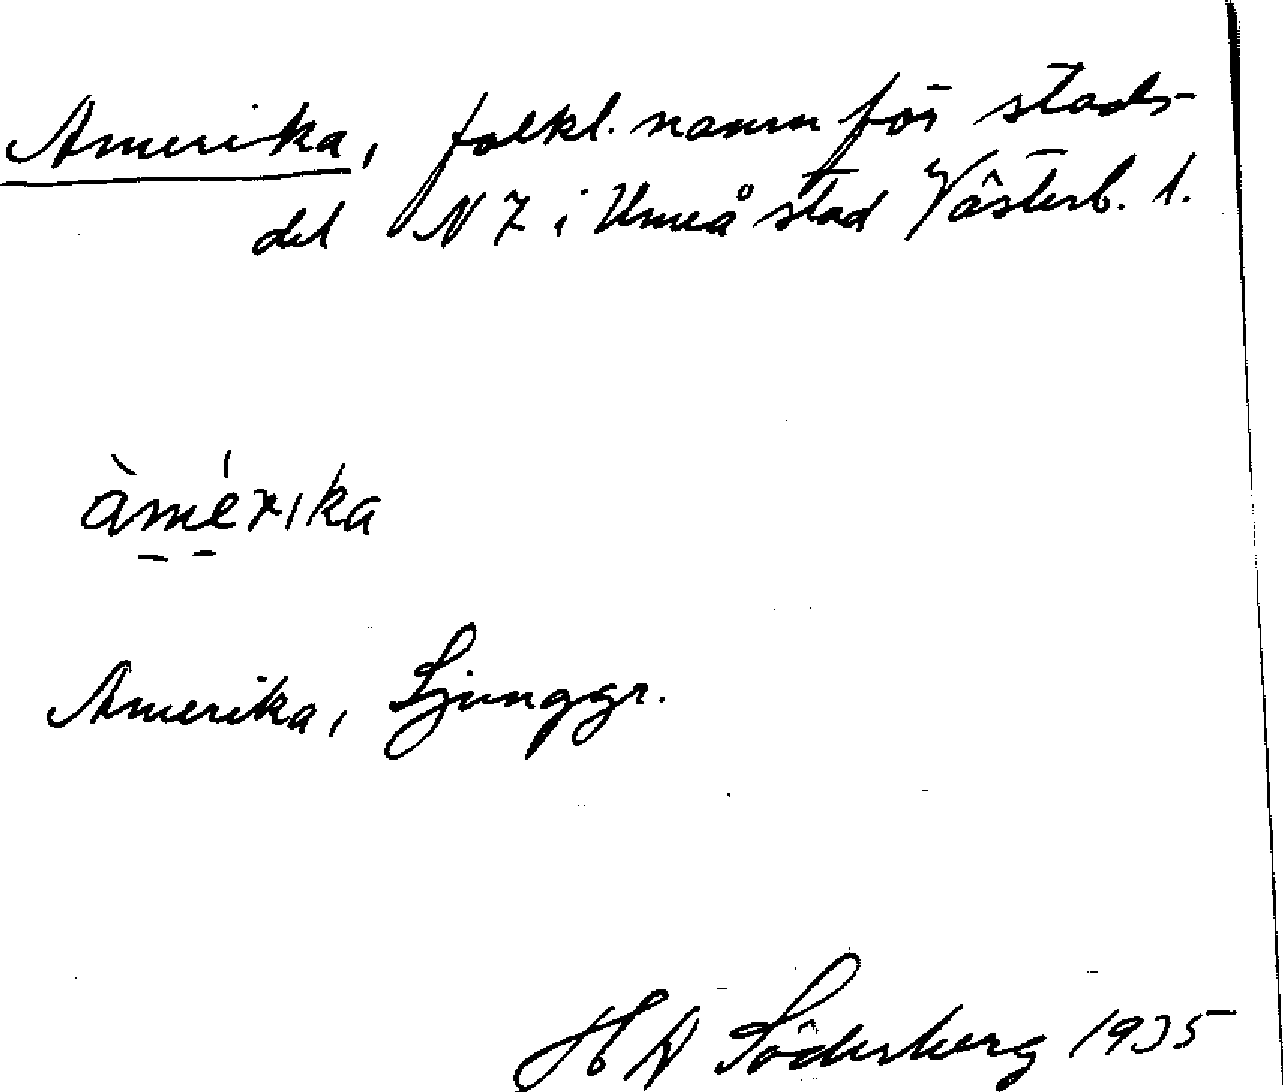 Amerika, folkl. namn för stads-
del N 7 i Umeå stad Västerb. l.
àmérika
Amerika, Ljunggr.
H A Söderberg 1935